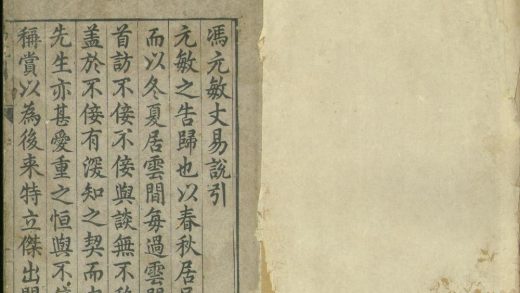 馮元敏丈易說引
元敏之告歸也以春秋居
而以冬夏居雲間每過雲間
首訪不佞不佞與談無不
蓋於不佞有深知之契而
先生亦甚愛重之恒與不佞
稱賞以為後来特立傑出